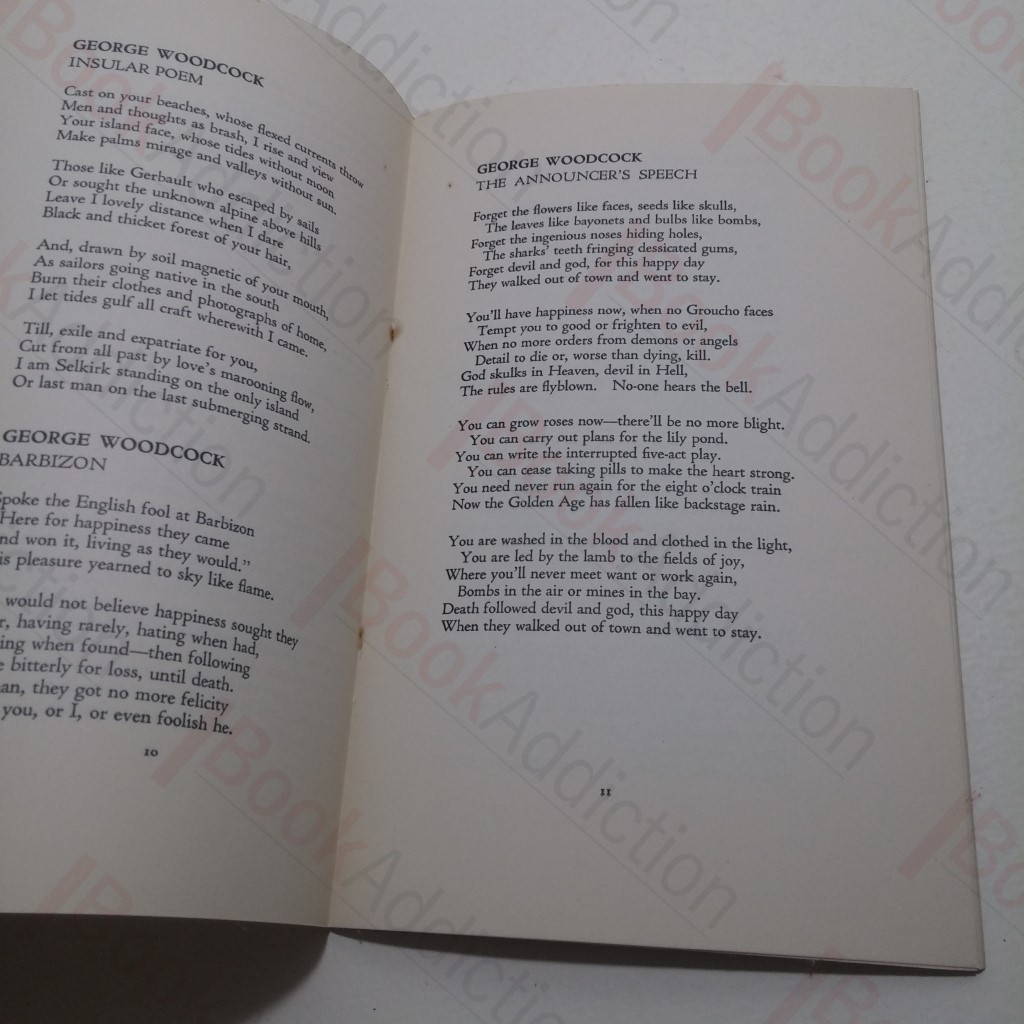 GEORGE WOODCOCK
INSULAR POEM
Cast on your beaches, whose flexed currents throw
Men and thoughts as brash, I rise and view
Your island face, whose tides without moon
Make palms mirage and valleys without sun.
Those like Gerbault who escaped by sails
Or sought the unknown alpine above hills
Leave I lovely distance when I dare
Black and thicket forest of your hair,
And, drawn by soil magnetic of your mouth,
As sailors going native in the south
Burn their clothes and photographs of home,
I let tides gulf all craft wherewith I came.
Till, exile and expatriate for you,
Cut from all past by love's marooning flow,
I am Selkirk standing on the only island
Or last man on the last submerging strand.
GEORGE WOODCOCK
BARBIZON
Spoke the English fool at Barbizon
Here for happiness they came
nd won it, living as they would."
is pleasure yearned to sky like flame.
would not believe happiness sought they
r, having rarely, hating when had,
ing when found—then following
e bitterly for loss, until death.
an, they got no more felicity
you, or I, or even foolish he.
10
GEORGE WOODCOCK
THE ANNOUNCER'S SPEECH
Forget the flowers like faces, seeds like skulls,
The leaves like bayonets and bulbs like bombs,
Forget the ingenious noses hiding holes,
The sharks' teeth fringing dessicated gums,
Forget devil and god, for this happy day
They walked out of town and went to stay.
You'll have happiness now, when no Groucho faces
Tempt you to good or frighten to evil,
When no more orders from demons or angels
Detail to die or, worse than dying, kill.
God skulks in Heaven, devil in Hell,
The rules are flyblown. No-one hears the bell.
You can grow roses now—there'll be no more blight.
You can carry out plans for the lily pond.
You can write the interrupted five-act play.
You can cease taking pills to make the heart strong.
You need never run again for the eight o'clock train
Now the Golden Age has fallen like backstage rain.
You are washed in the blood and clothed in the light,
You are led by the lamb to the fields of joy,
Where you'll never meet want or work again,
Bombs in the air or mines in the bay.
Death followed devil and god, this happy day
When they walked out of town and went to stay.
11
BookAddiction